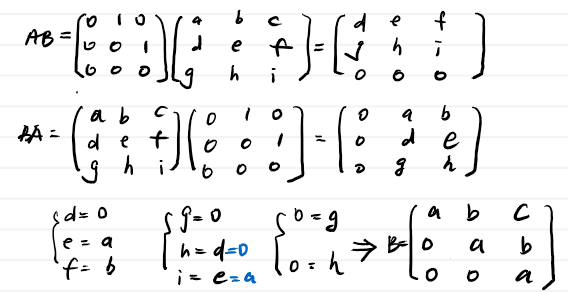 AB = (0 1 0 / 0 0 1 / 0 0 0) (a b c / d e f / g h i) = (d e f / g h i / 0 0 0)
BA = (a b c / d e f / g h i) (0 1 0 / 0 0 1 / 0 0 0) = (0 a b / 0 d e / 0 g h)
{ d = 0 / e = a / f = b { g = 0 / h = d = 0 / i = e = a { 0 = g / 0 = h ⇒ B = (a b c / 0 a b / 0 0 a)